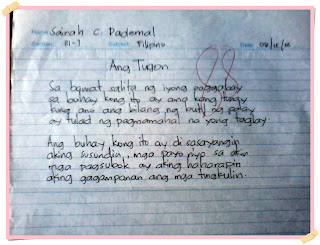 Name: Sairah C. Pademal
Section: III-1 Subject: Filipino Date:
Ang Tugon
98
Sa bawat salita ng iyong paggabay
sa buhay kong ito ay ang
kung ano ang bilang ng butil ng palay
ay tulad ng pagmamahal na iyong taglay.
Ang buhay kong ito ay di sasayangin
aking susundin, mga payo niyo sa akin
mga pagsubok ay aking haharapin
aking gagampanan ang mga tungkulin.